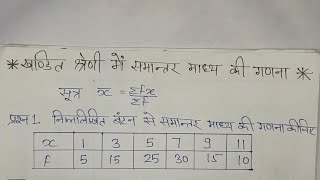 * खण्डित श्रेणी में समान्तर माध्य की गणना *
सूत्र x̄ = Σfx / Σf
प्रश्न 1. निम्नलिखित बंटन से समान्तर माध्य की गणना कीजिए
x 1 3 5 7 9 11
f 5 15 25 30 15 10